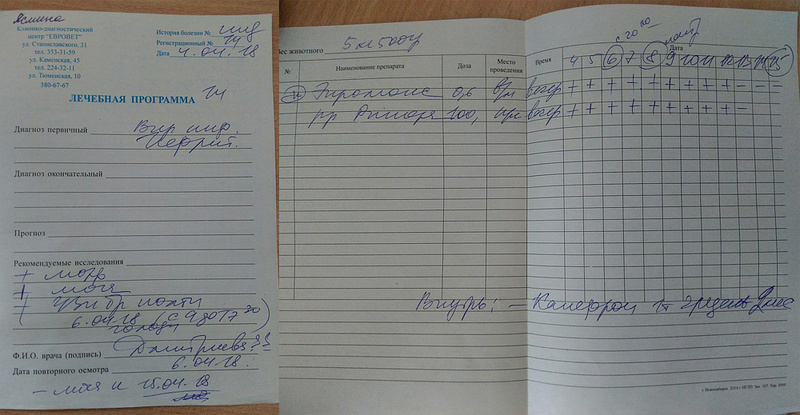 Ясмина
Клинико-диагностический
центр "ЕВРОВЕТ"
ул. Станиславского, 31
тел. 353-31-59
ул. Каменская, 45
тел. 224-32-11
ул. Тюменская, 10
380-67-67
История болезни №
Регистрационный № 14
Дата 4.04.18
ЛЕЧЕБНАЯ ПРОГРАММА
Диагноз первичный Вир инф.
Нефрит.
Диагноз окончательный
Прогноз
Рекомендуемые исследования
+ моча
+ УЗИ бр полти
6.04.18 (с 9 до 17
голодн
Ф.И.О. врача (подпись) Дмитриева
Дата повторного осмотра 6.04.18
- моча и 15.04.18
Вес животного 5 кг 500гр
№ Наименование препарата Доза Место проведения Время Дата
4 5 6 7 8 9 10 11 12 13 14 15
0,6 в/м вечер + + + + + + + + + - - -
р-р Рингера 100, вечер + + + + + + + + + -
Внутрь: - Канефрон 1т 2р в день